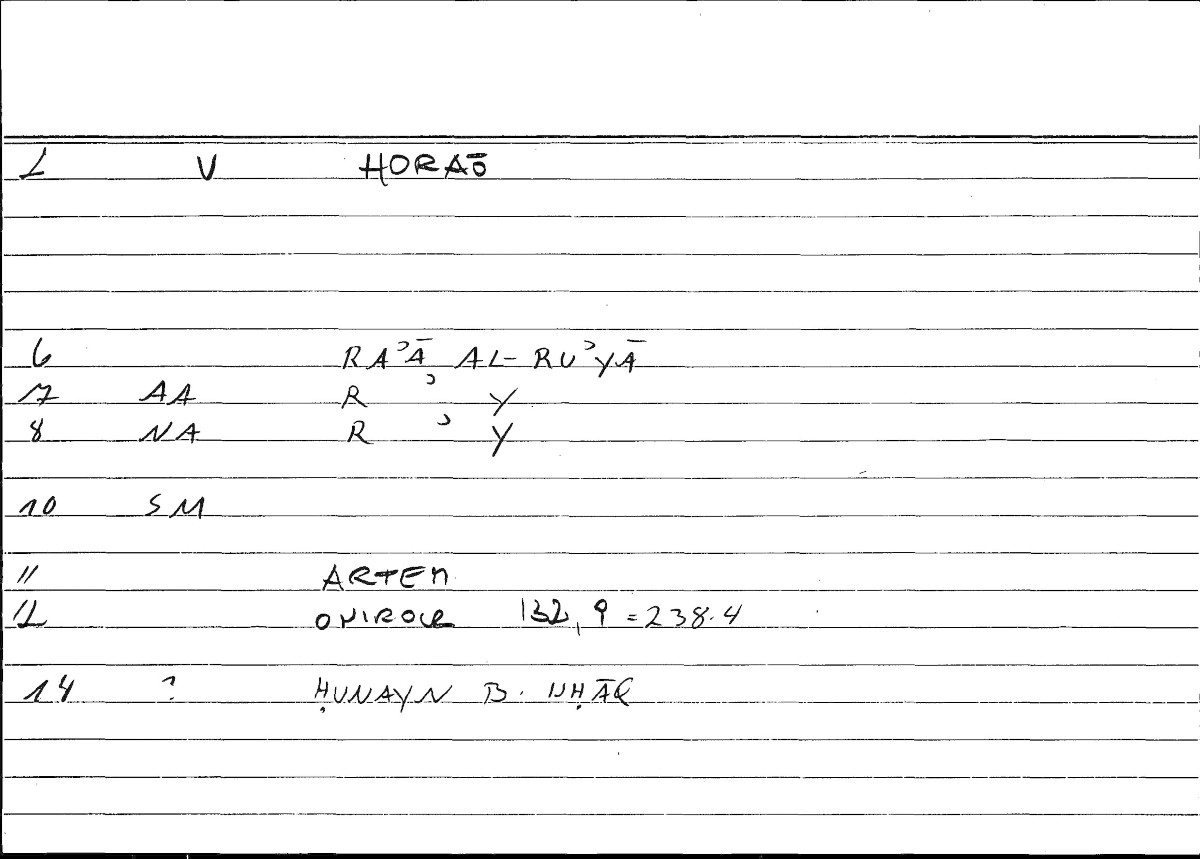 L V HORAŌ
6 RAʾĀ AL-RUʾYĀ
7 AA R ʾ Y
8 NA R ʾ Y
10 SM
11 ARTEM
12 ONIROCR 132,9 = 238.4
14 ? ḤUNAYN B. ISḤĀQ